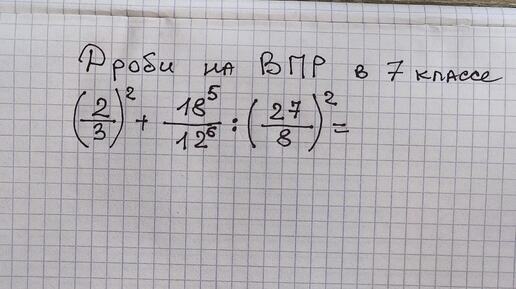 Дроби на ВПР в 7 классе
(2/3)² + 18⁵/12⁶ : (27/8)² =